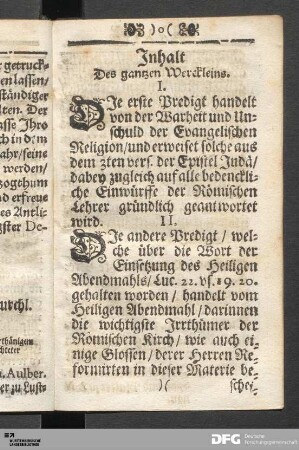 r getruck-
en lassen/
ständiger
lten. Der
asse Ihro
ch in dem
ahr/seine
werden/
zogthum
nd erfreue
es Antli-
gster De-
urchl.
rthänigem
. Aulber.
er zu Lust-
)o(
Inhalt
Des gantzen Werckleins.
I.
DIe erste Predigt handelt
von der Warheit und Un-
schuld der Evangelischen
Religion/ und erweiset solche aus
dem 3ten vers. der Epistel Judä/
dabey zugleich auf alle bedenckli-
che Einwürffe der Römischen
Lehrer gründlich geantwortet
wird.
II.
DIe andere Predigt / wel-
che über die Wort der
Einsetzung des Heiligen
Abendmahls/ Luc. 22. vs. 19. 20.
gehalten worden / handelt vom
Heiligen Abendmahl / darinnen
die wichtigste Irrthümer der
Römischen Kirch / wie auch ei-
nige Glossen / derer Herren Re-
formirten in dieser Materie be-
)( schei-
DFG Deutsche
Forschungsgemeinschaft